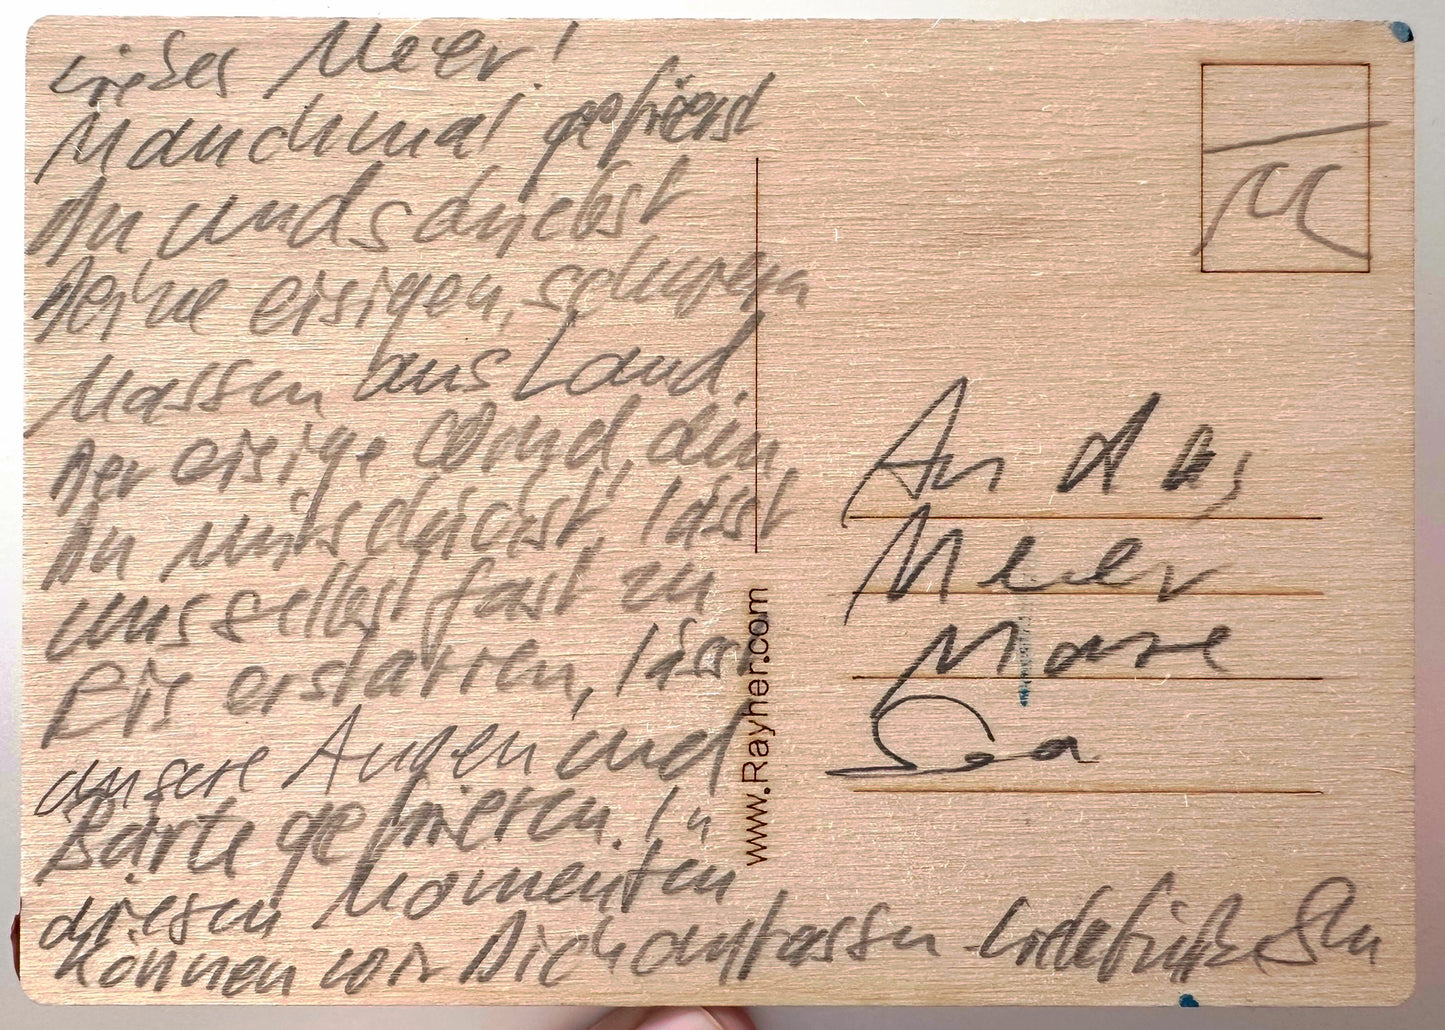 Liebes Meer!
Manchmal gefrierst
Du und schiebst
Deine eisigen, schweren
Massen ans Land.
Der eisige Wind, den
Du mitschickst, lässt
uns selbst fast zu
Eis erstarren, lässt
unsere Augen und
Bärte gefrieren. In
diesen Momenten
können wir Dich anfassen
An das
Meer
Mare
Sea
www.Rayher.com